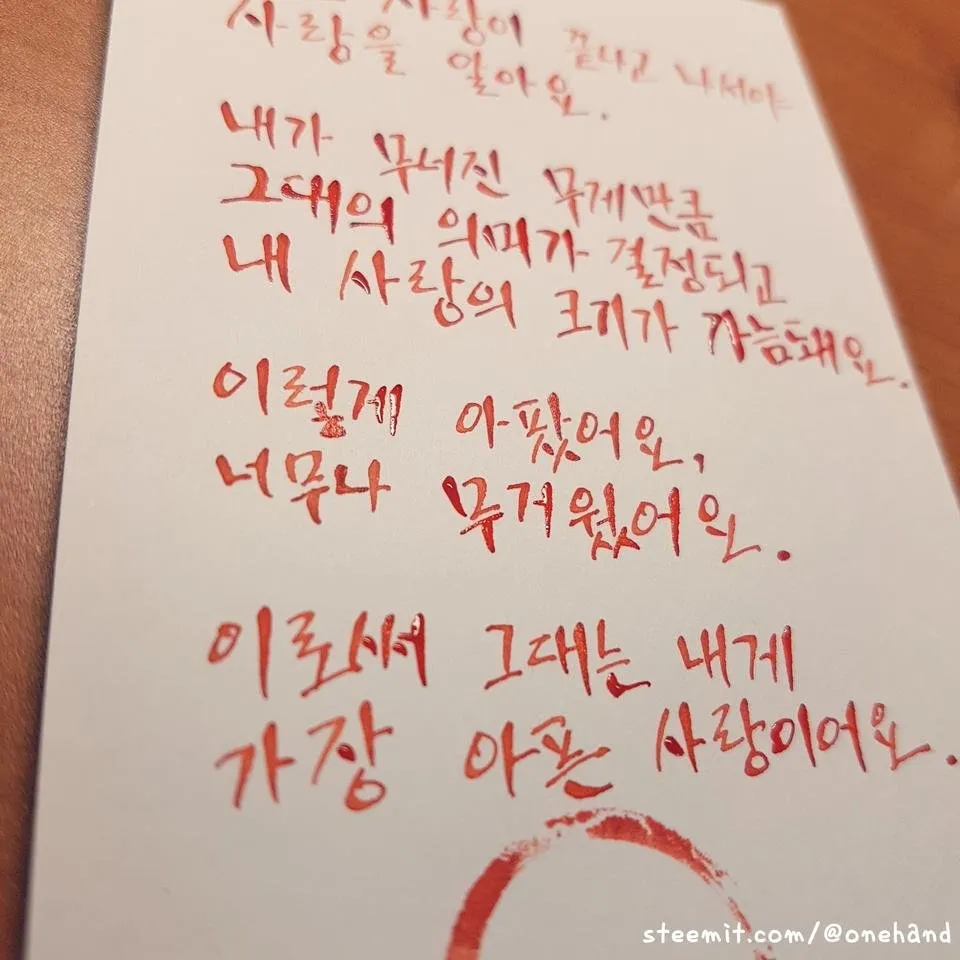 사랑이 끝나고 나서야
사랑을 알아요.
내가 무너진 무게만큼
그대의 의미가 결정되고
내 사랑의 크기가 가늠돼요.
이렇게 아팠어요,
너무나 무거웠어요.
이로써 그대는 내게
가장 아픈 사랑이어요.
steemit.com/@onehand